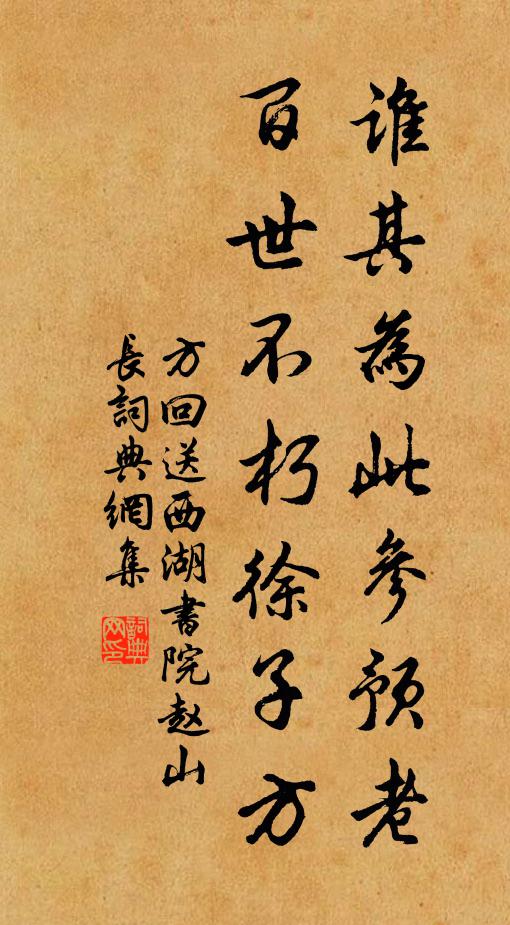 誰其為此參預老
百世不朽徐子方
方回送西湖書院趙山
長詞典網集
詞典網印